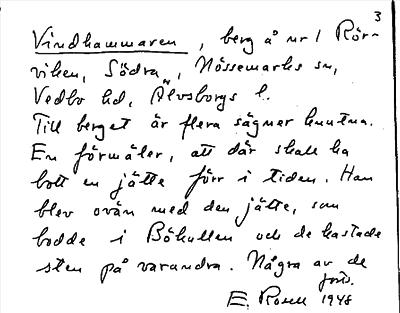 3
Vindhammaren, berg å nr 1 Rör-
viken, Södra, Nössemarks sn,
Vedbo hd, Älvsborgs l.
Till berget är flera sägner knutna.
En förmäler, att där skall ha
bott en jätte förr i tiden. Han
blev ovän med den jätte, som
bodde i Bökullen och de kastade
sten på varandra. Några av de
forts.
E. Rosell 1948